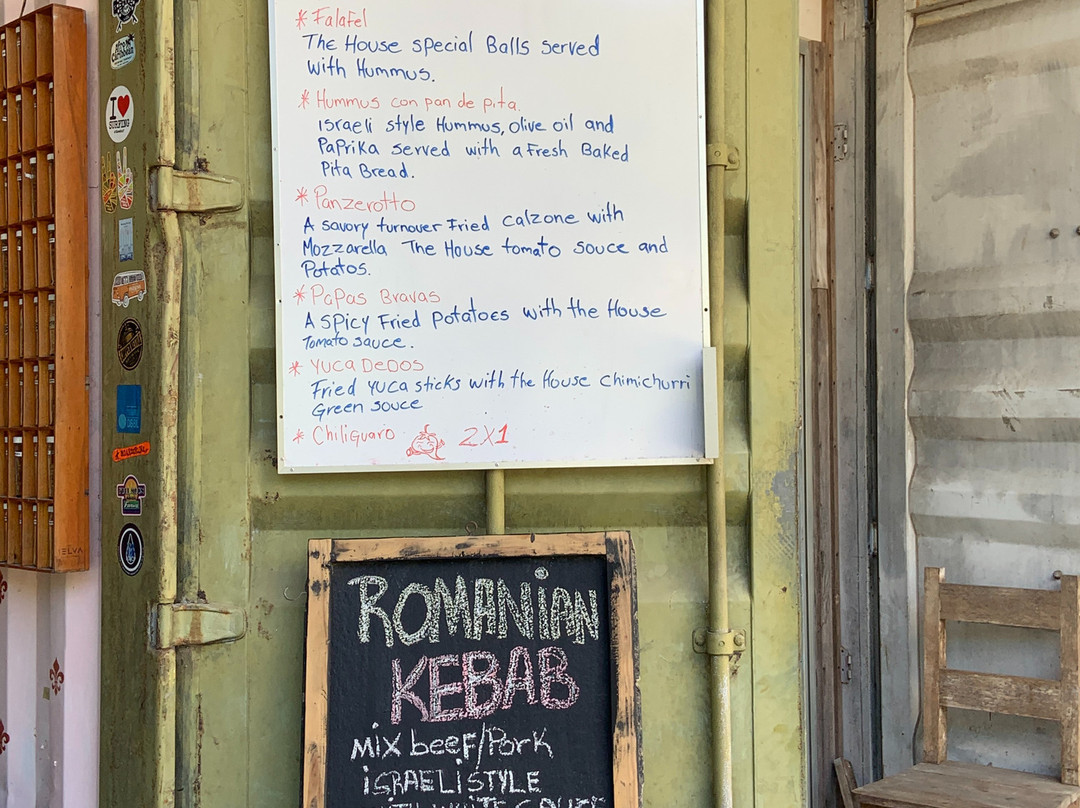 * Falafel
The House special Balls served
with Hummus.
* Hummus con pan de pita.
israeli style Hummus, olive oil and
Paprika served with a Fresh Baked
Pita Bread.
* Panzerotto
A savory turnover Fried calzone with
Mozzarella The House tomato souce and
Potatos.
* Papas Bravas
A spicy Fried potatoes with the House
Tomato sauce.
* Yuca Dedos
Fried yuca sticks with the House chimichurri
Green souce
* Chiliguaro 2X1
ROMANiAN
KEBAB
Mix beef/Pork
iSRAELi STYLE
WITH WHITE SAUCE
I
SURFING